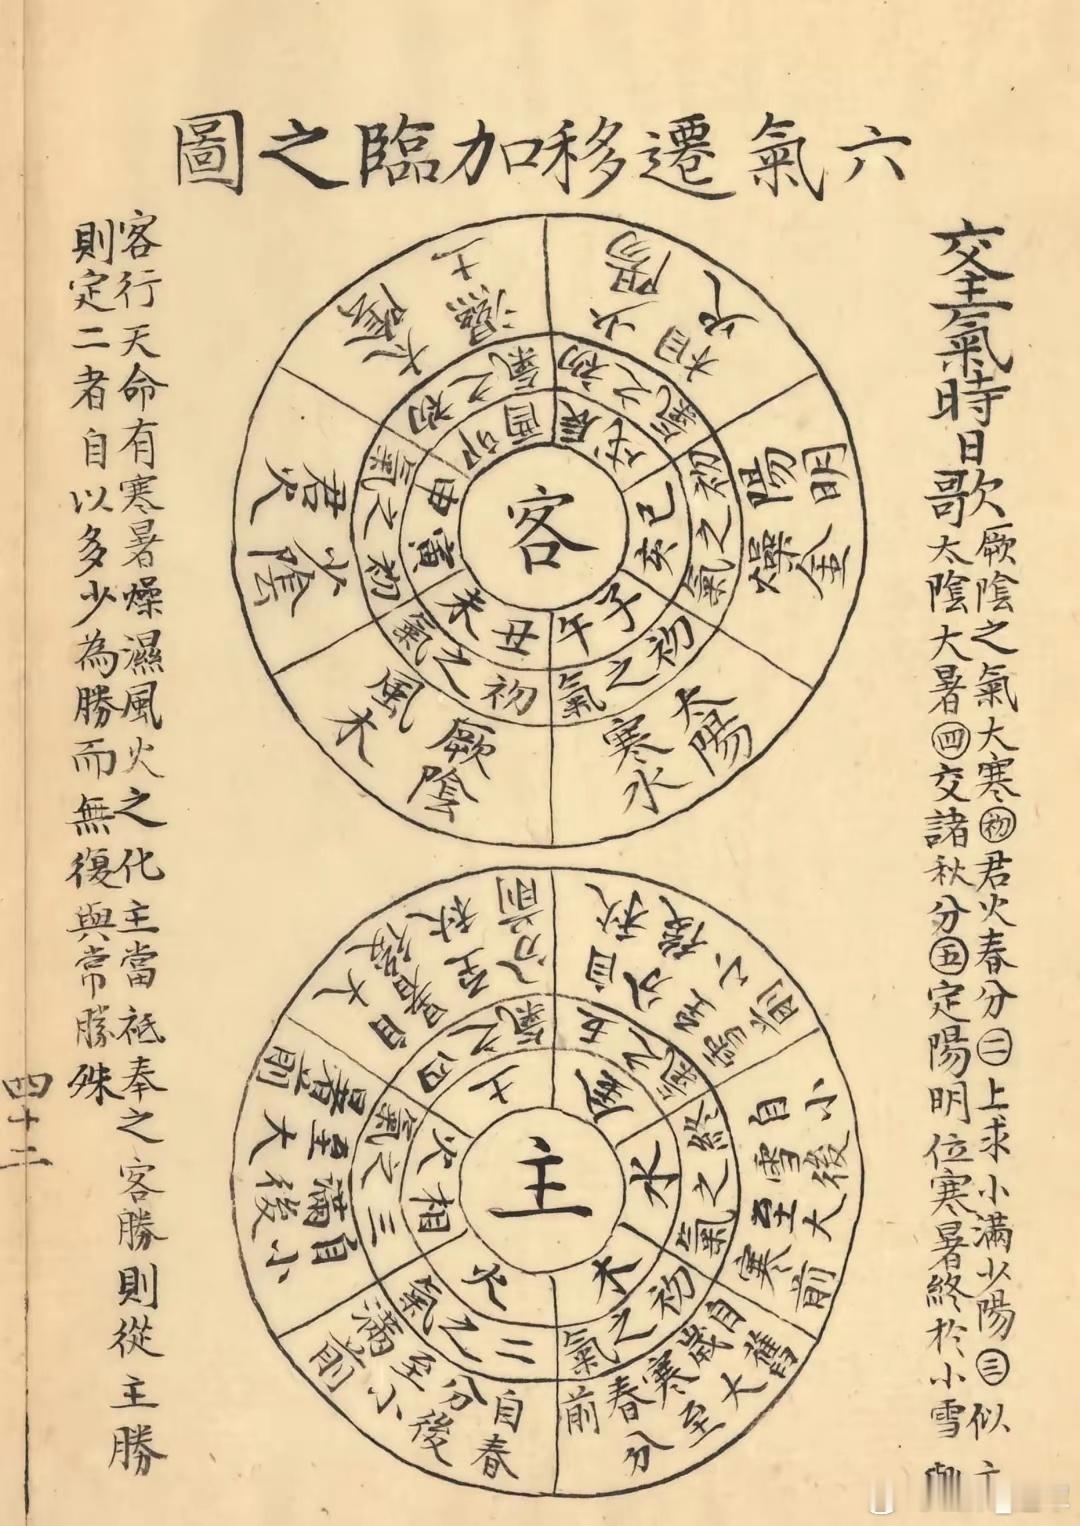 六氣遷移加臨之圖
交主氣時日歌
厥陰之氣大寒初君火春分二上求小滿少陽三似
太陰大暑四交諸秋分五定陽明位寒暑終於小雪
客
辰戌
初之氣
少陽相火
巳亥
初之氣
陽明燥金
子午
初之氣
太陽寒水
丑未
初之氣
厥陰風木
寅申
初之氣
少陰君火
卯酉
初之氣
太陰濕土
主
木
初之氣
自舊歲大寒至春分前
火
二之氣
自春分後至小滿前
相火
三之氣
自小滿後至大暑前
土
四之氣
自大暑後至秋分前
五之氣
自秋分後至小雪前
水
終之氣
自小雪後至大寒前
客行天命有寒暑燥濕風火之化主當祗奉之客勝則從主勝
則定二者自以多少為勝而無復與常勝殊
四十二